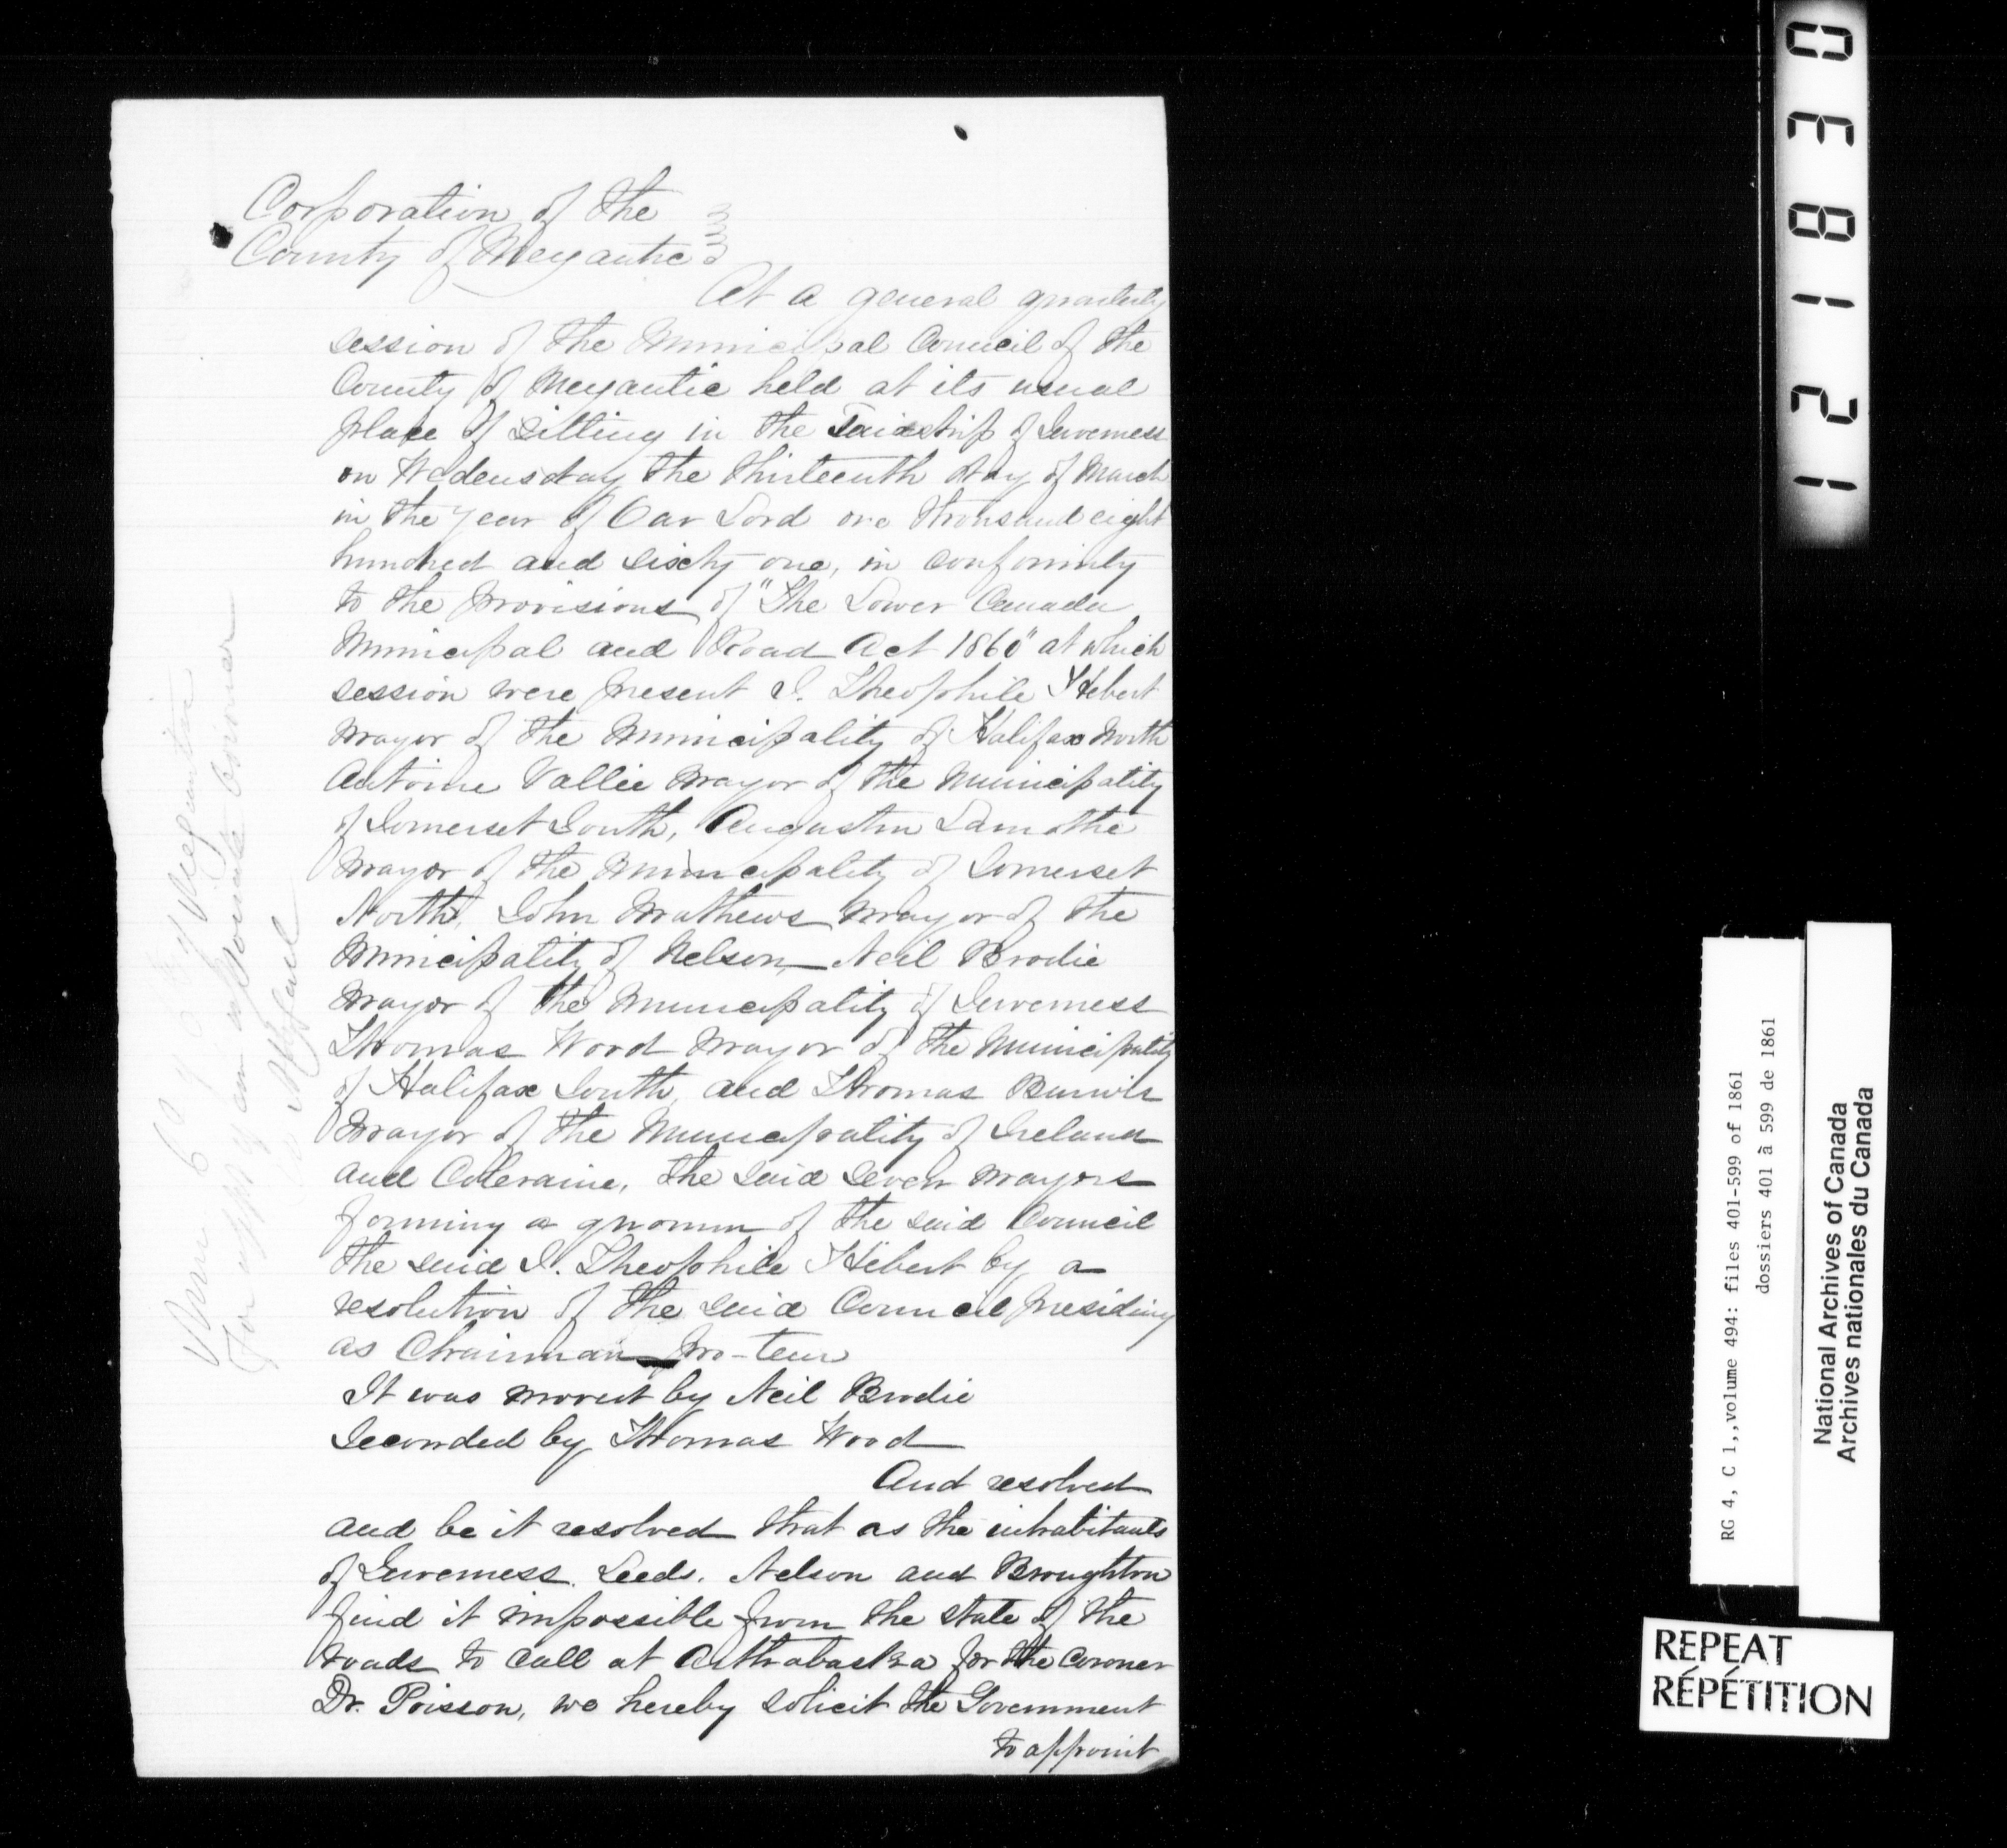 Corporation of the
County of Megantic
At a general quarterly
session of the Municipal Council of the
County of Megantic held at its usual
place of sitting in the Township of Inverness
on Wedensday the thirteenth day of March
in the year of Our Lord one thousand eight
hundred and sixty one, in conformity
to the provisions of "The Lower Canada
Municipal and Road Act 1860" at which
session were present I. Theophile Hebert
mayor of the Municipality of Halifax North
Antoine Vallée mayor of the Municipality
of Somerset South, Augustin Lamothe
mayor of the Municipality of Somerset
North, John Mathews mayor of the
Municipality of Nelson, Neil Brodie
mayor of the Municipality of Inverness
Thomas Wood mayor of the Municipality
of Halifax South, and Thomas
mayor of the Municipality of Ireland
and Coleraine, the said seven mayors
forming a quorum of the said Council
the said I. Theophile Hébert by a
resolution of the said Council presiding
as Chairman pro-tem
It was moved by Neil Brodie
Seconded by Thomas Wood
And resolved
and be it resolved that as the inhabitants
of Inverness. Leeds. Nelson and Broughton
find it impossible from the state of the
roads to call at Arthabaska for the Coroner
Dr. Poisson, we hereby solicit the Government
to appoint
of Megantic
For app^g an associate Coroner
03812 1
RG 4, C 1,,volume 494: files 401-599 of 1861
dossiers 401 à 599 de 1861
National Archives of Canada
Archives nationales du Canada
REPEAT
RÉPÉTITION